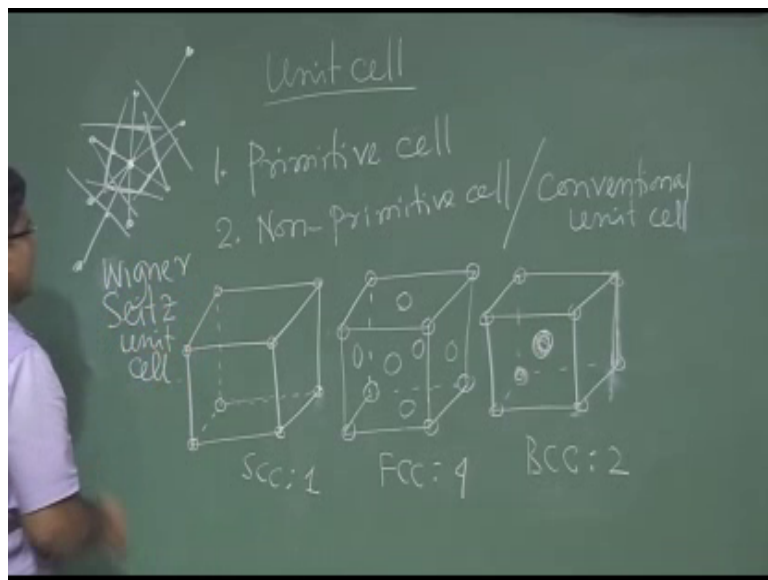 Unit cell
1. Primitive cell
2. Non-Primitive cell / Conventional
unit cell
Wigner
Seitz
unit
cell
SCC: 1
FCC: 4
BCC: 2